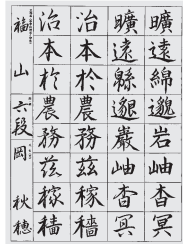 曠遠綿邈岩岫杳冥
曠遠緜邈巖岫杳冥
治本於農務茲稼穡
治本於農務茲稼穡
福山 六段 岡 秋穂